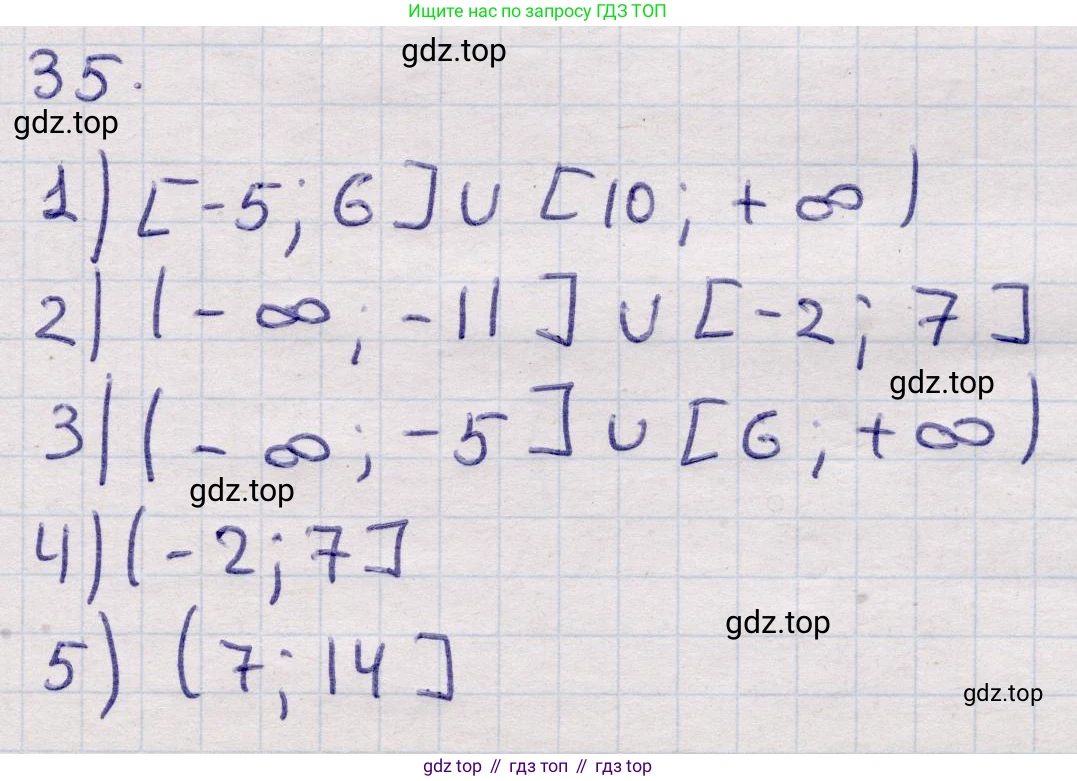 Ищите нас по запросу ГДЗ ТОП
gdz.top
35.
gdz.top
1) [-5; 6] ∪ [10; +∞)
2) (-∞; -11] ∪ [-2; 7]
gdz.top
3) (-∞; -5] ∪ [6; +∞)
gdz.top
4) (-2; 7]
gdz.top
5) (7; 14]
gdz.top
gdz top // гдз топ // гдз top